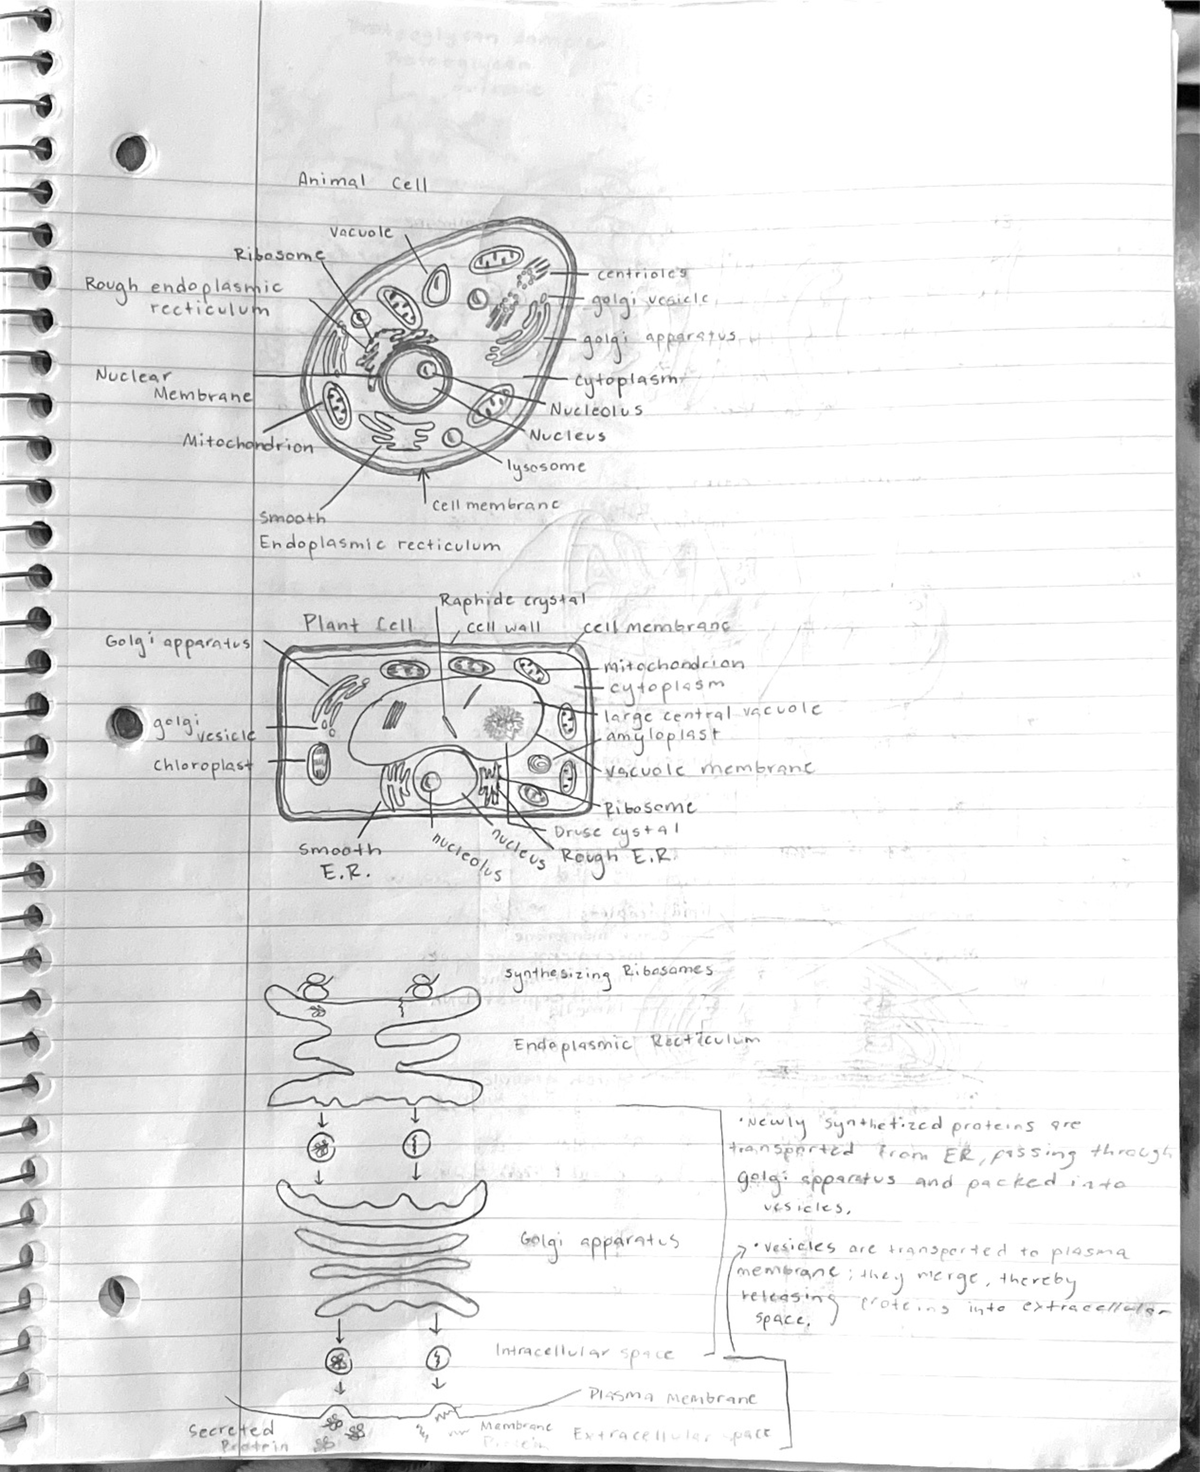 Animal Cell
Vacuole
Ribosome
Rough endoplasmic
recticulum
Nuclear
Membrane
Mitochondrion
Smooth
Endoplasmic recticulum
centrioles
golgi vesicle
golgi apparatus
cytoplasm
Nucleolus
Nucleus
lysosome
cell membrane
Raphide crystal
Plant Cell
cell wall
cell membrane
Golgi apparatus
golgi
vesicle
Chloroplast
mitochondrion
cytoplasm
large central vacuole
amyloplast
vacuole membrane
Ribosome
Druse cystal
Rough E.R.
nucleus
nucleolus
Smooth
E.R.
synthesizing Ribosomes
Endoplasmic Recticulum
•Newly synthetized proteins are
transported from ER, passing through
golgi apparatus and packed into
vesicles.
Golgi apparatus
•vesicles are transported to plasma
membrane; they merge, thereby
releasing proteins into extracellular
space.
Intracellular space
Plasma Membrane
Secreted
Protein
Membrane
Protein
Extracellular space